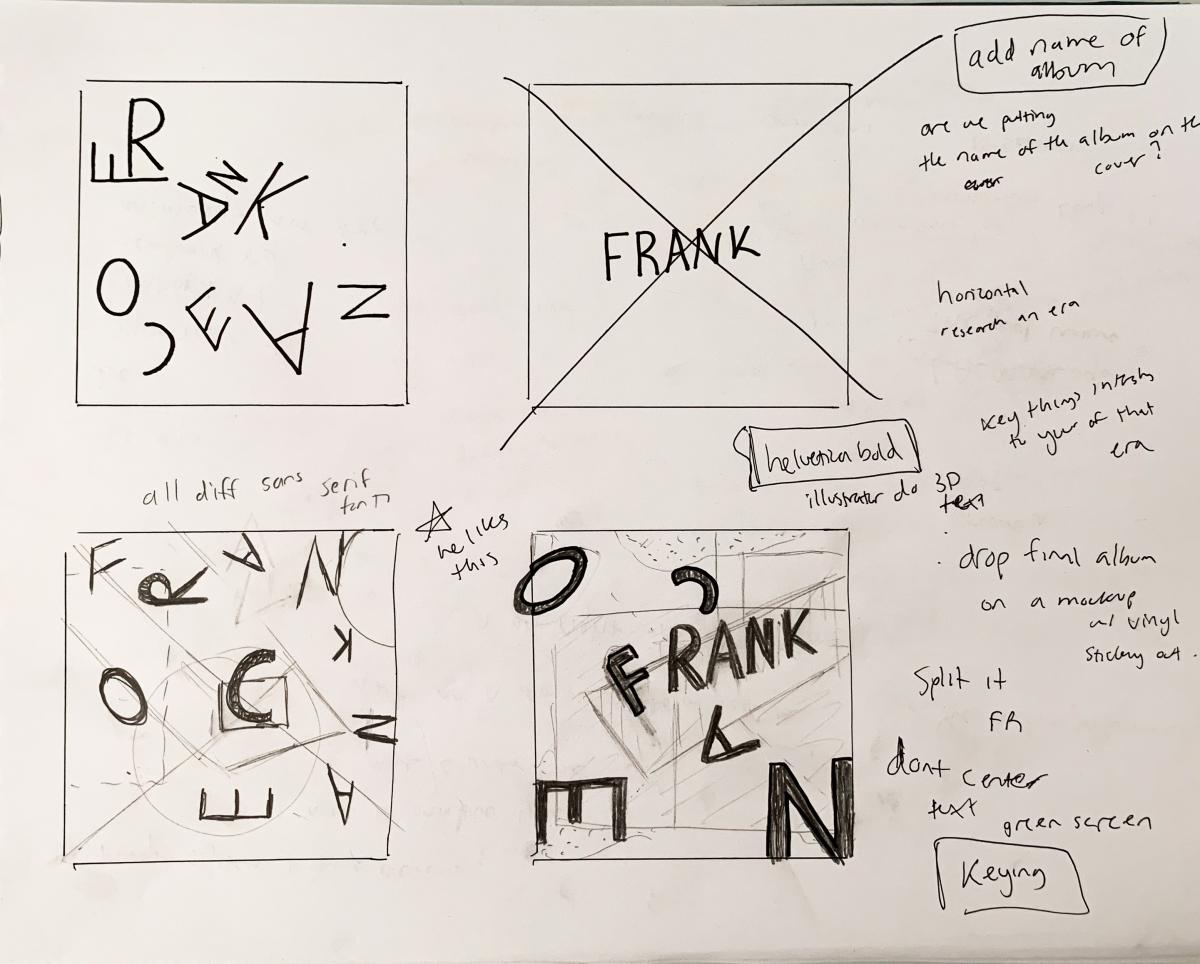 FR
ANK
O
C E A N
FRANK
add name of
album
are we putting
the name of the album on the
cover?
horizontal
research an era
key things
to your of that
era
helvetica bold
illustrator do 3D
text
all diff sans serif
font
he likes
this
F R A N
K
O C N
E A
O C
FRANK
A
E N
drop final album
on a mockup
w/ vinyl
sticking out.
Split it
FR
dont center
text
green screen
Keying